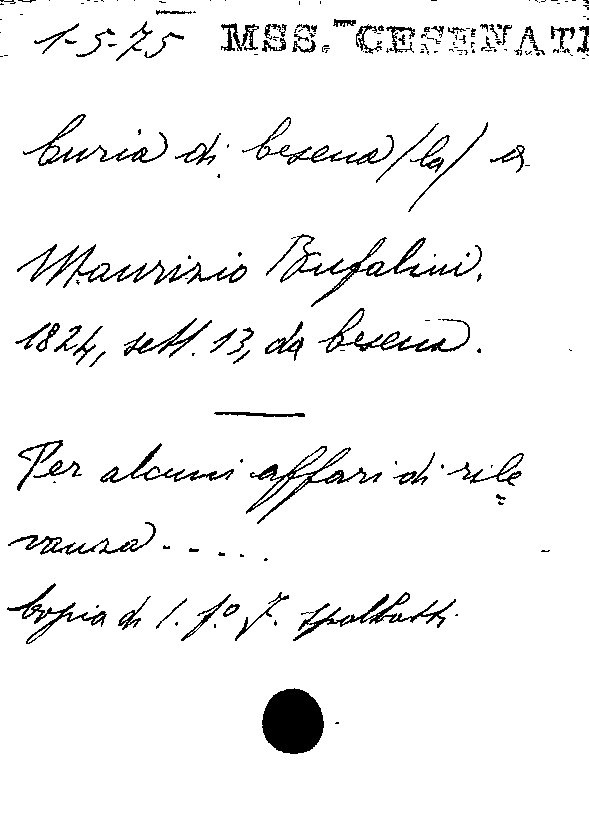 1-5-75 MSS. CESENATI
Curia di Cesena /la/ a
Maurizio Bufalini.
1824, sett. 13, da Cesena.
Per alcuni affari di rile
vanza.....
Copia di 1. f.º F.